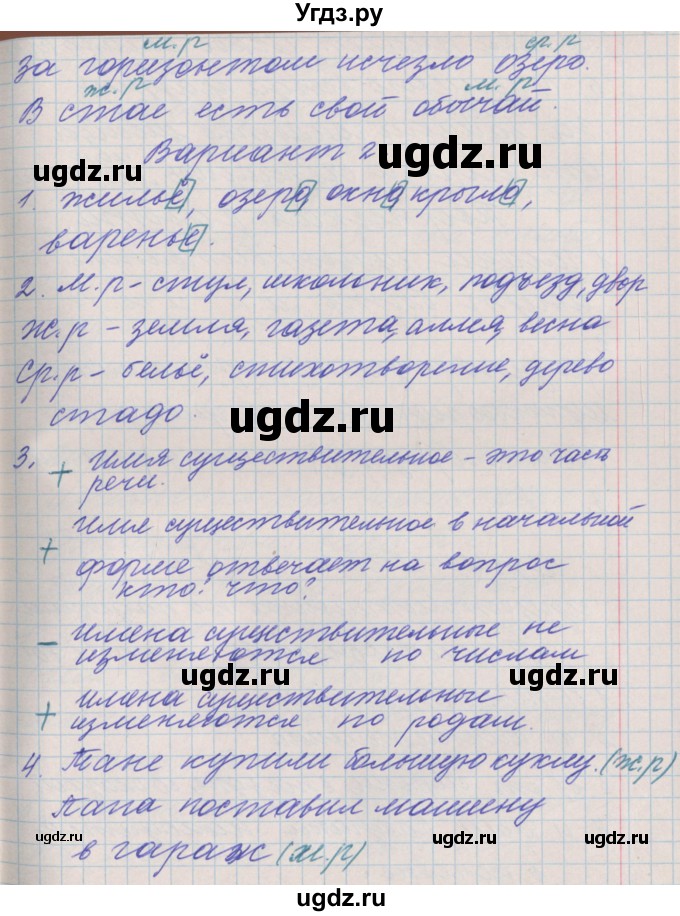 Угдз.ру
м.р ср.р
за горизонтом исчезло озеро.
ж.р м.р
В стае есть свой обычай.
Вариант 2
ugdz.ru ugdz.ru
1. жильё, озера окна крыла,
варенье.
ugdz.ru
2. М.р - стул, школьник, подъезд, двор
Ж.р - земля, газета, аллея, весна
Ср.р - бельё, стихотворение, дерево
стадо.
ugdz.ru
3. + Имя существительное - это часть
речи.
+ Имя существительное в начальной
форме отвечает на вопрос
кто? что?
ugdz.ru
- имена существительные не
изменяются по числам
ugdz.ru
+ имена существительные
изменяются по родам.
4. Тане купили большую куклу. (ж.р)
Папа поставил машину
ugdz.ru ugdz.ru
в гараж (м.р)
ugdz.ru